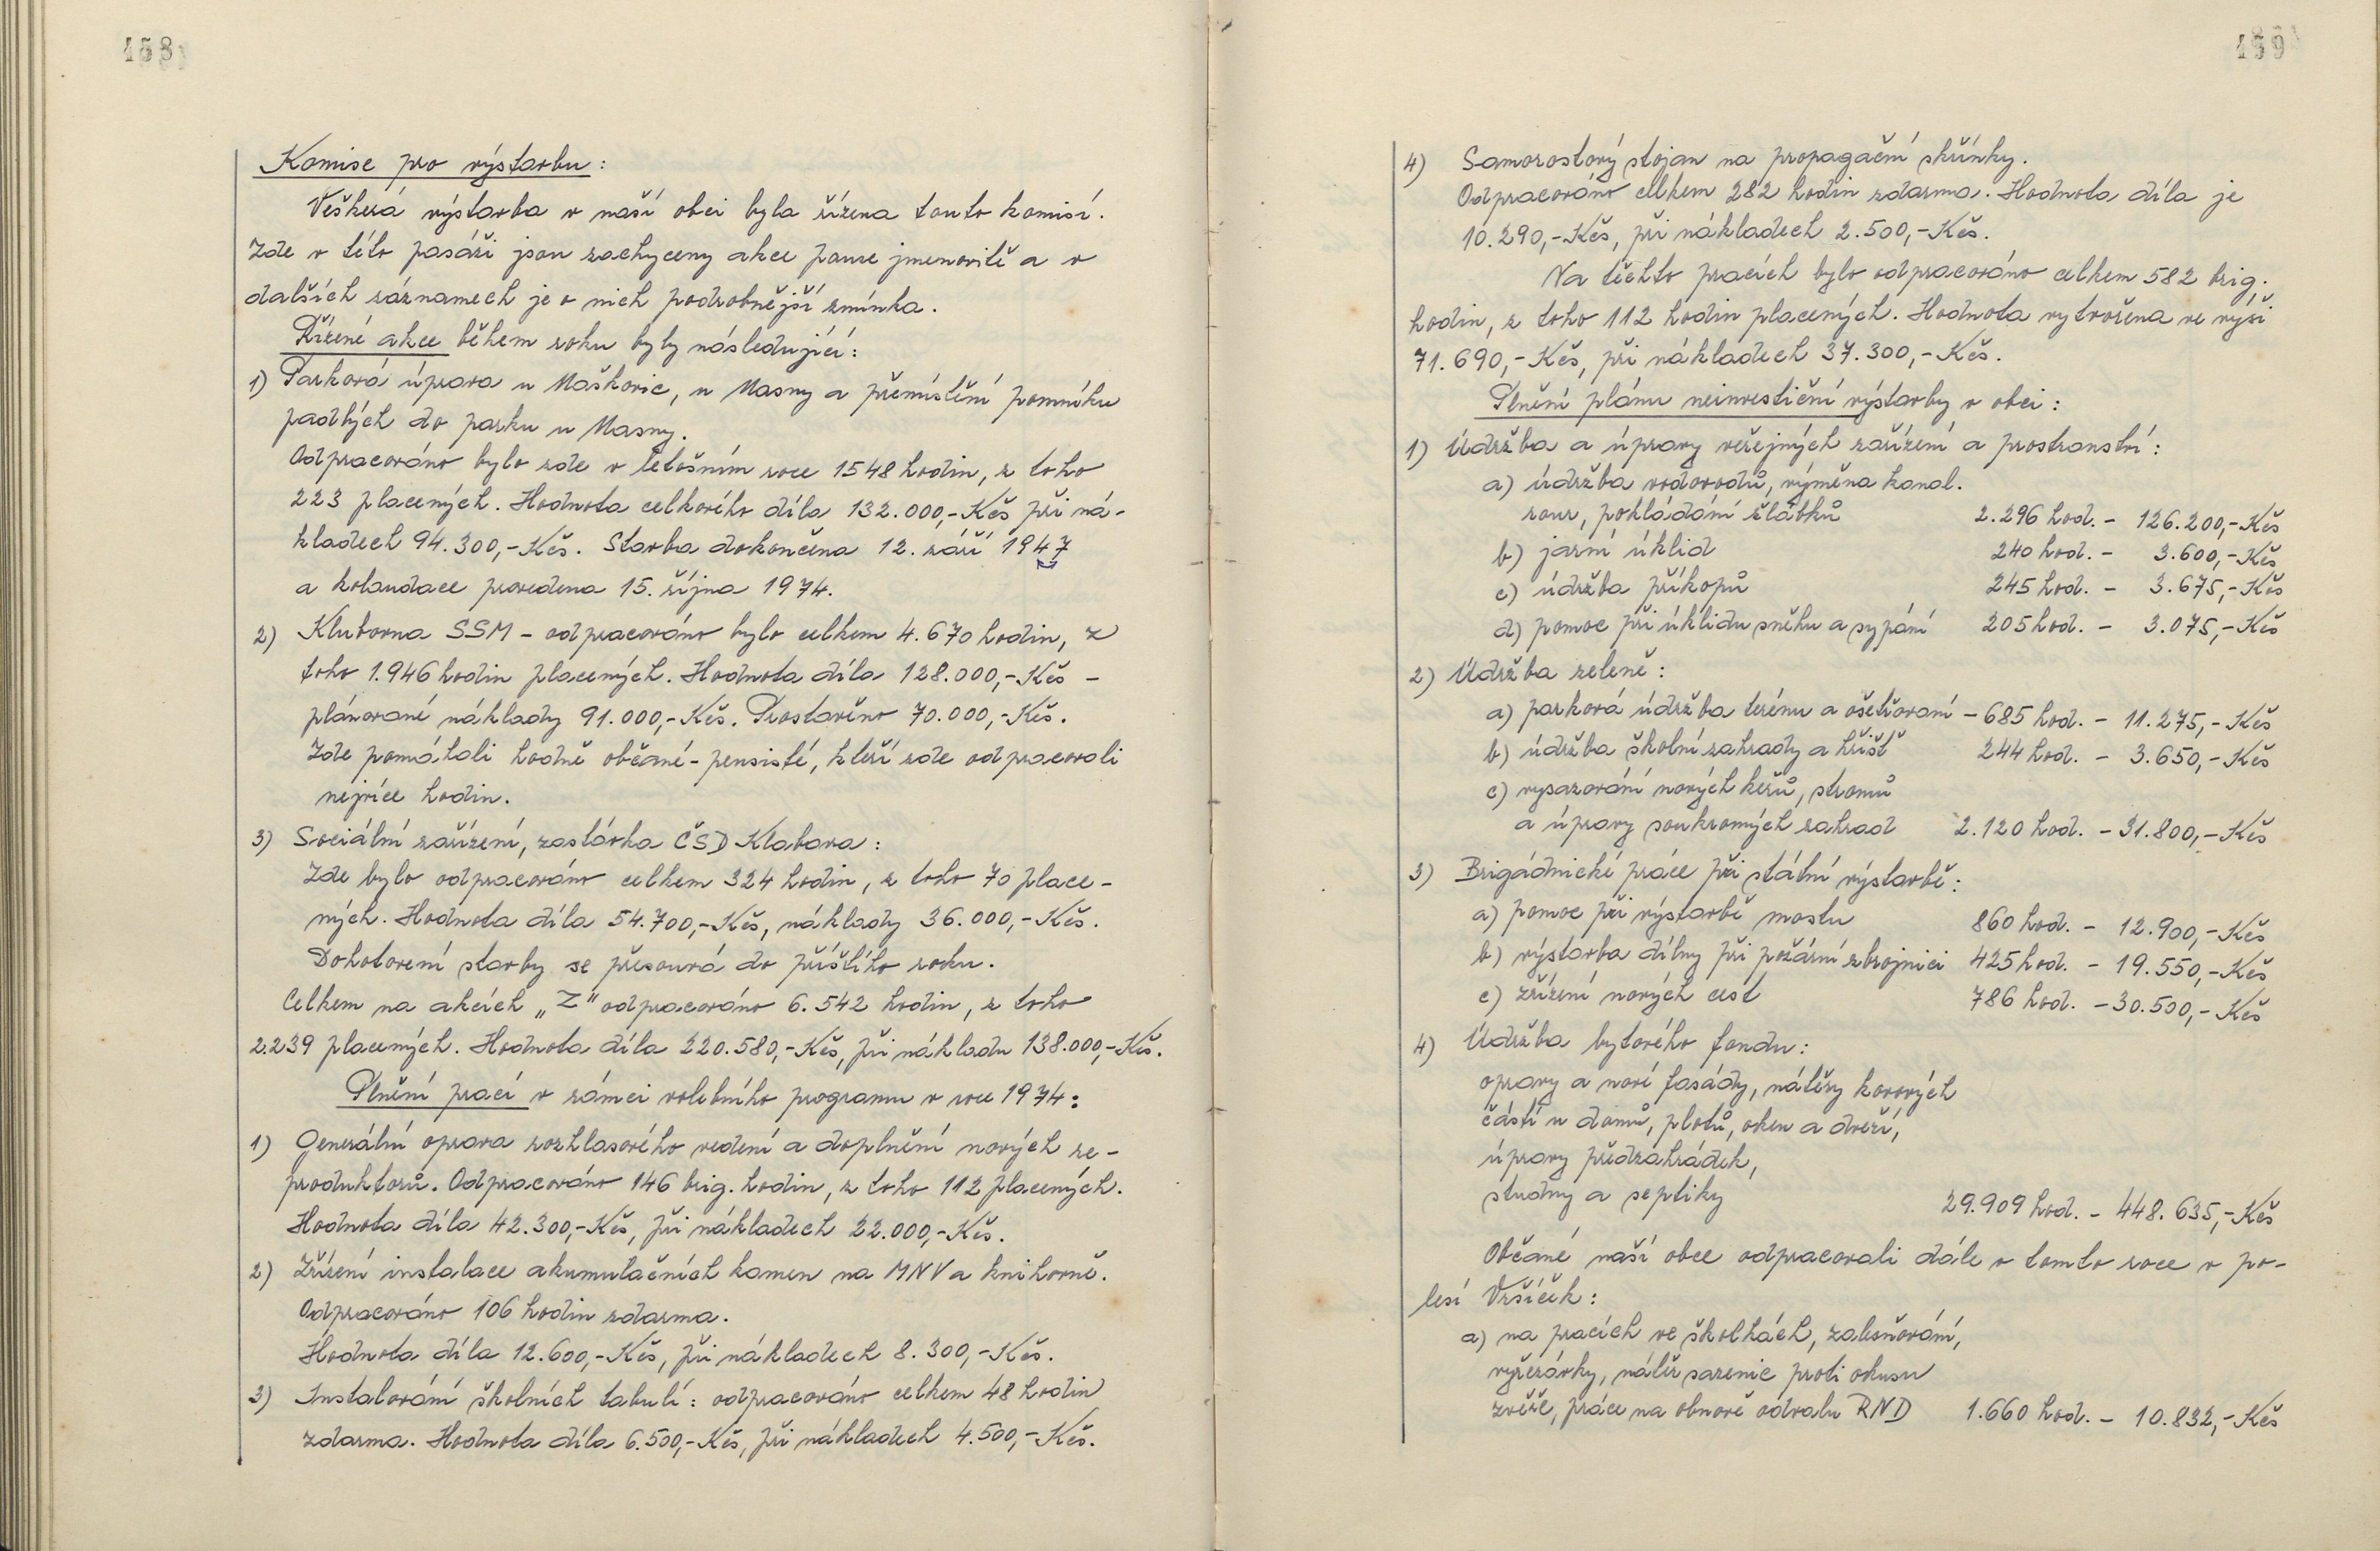 158
Komise pro výstavbu:
Veškerá výstavba v naší obci byla řízena touto komisí.
Zde v této pasáži jsou zachyceny akce pouze jmenovitě a v
dalších záznamech je o nich podrobnější zmínka.
Řízené akce během roku byly následující:
1) Parková úprava u Maškovic, u Masny a přemístění pomníku
padlých do parku u Masny.
Odpracováno bylo zde v letošním roce 1548 hodin, z toho
223 placených. Hodnota celkového díla 132.000,-Kčs při ná-
kladech 94.300,-Kčs. Stavba dokončena 12. září 1947
a kolaudace provedena 15. října 1974.
2) Klubovna SSM - odpracováno bylo celkem 4.670 hodin, z
toho 1.946 hodin placených. Hodnota díla 128.000,-Kčs -
plánované náklady 91.000,-Kčs. Prostavěno 70.000,-Kčs.
Zde pomáhali hodně občané-pensisté, kteří zde odpracovali
nejvíce hodin.
3) Sociální zařízení, zastávka ČSD Klabava:
Zde bylo odpracováno celkem 324 hodin, z toho 70 place-
ných. Hodnota díla 54.700,-Kčs, náklady 36.000,-Kčs.
Dohotovení stavby se přesouvá do příštího roku.
Celkem na akcích „Z" odpracováno 6.542 hodin, z toho
2.239 placených. Hodnota díla 220.580,-Kčs, při nákladu 138.000,-Kčs.
Plnění prací v rámci volebního programu v roce 1974:
1) Generální oprava rozhlasového vedení a doplnění nových re-
produktorů. Odpracováno 146 brig. hodin, z toho 112 placených.
Hodnota díla 42.300,-Kčs, při nákladech 22.000,-Kčs.
2) Zřízení instalace akumulačních kamen na MNV a knihovně.
Odpracováno 106 hodin zdarma.
Hodnota díla 12.600,-Kčs, při nákladech 8.300,-Kčs.
3) Instalování školních tabulí: odpracováno celkem 48 hodin
zdarma. Hodnota díla 6.500,-Kčs, při nákladech 4.500,-Kčs.
159
4) Samorostový stojan na propagační skřínky.
Odpracováno celkem 282 hodin zdarma. Hodnota díla je
10.290,-Kčs, při nákladech 2.500,-Kčs.
Na těchto pracích bylo odpracováno celkem 582 brig.
hodin, z toho 112 hodin placených. Hodnota vytvořena ve výši
71.690,-Kčs, při nákladech 37.300,-Kčs.
Plnění plánu neinvestiční výstavby v obci:
1) Údržba a úpravy veřejných zařízení a prostranství:
a) údržba vodovodů, výměna kanal.
rour, pokládání žlábků 2.296 hod. - 126.200,-Kčs
b) jarní úklid 240 hod. - 3.600,-Kčs
c) údržba příkopů 245 hod. - 3.675,-Kčs
d) pomoc při úklidu sněhu a sypání 205 hod. - 3.075,-Kčs
2) Údržba zeleně:
a) parková údržba terénu a ošetřovaní - 685 hod. - 11.275,-Kčs
b) údržba školní zahrady a hřišť 244 hod. - 3.650,-Kčs
c) vysazování nových keřů, stromů
a úpravy soukromých zahrad 2.120 hod. - 31.800,-Kčs
3) Brigádnické práce při státní výstavbě:
a) pomoc při výstavbě mostu 860 hod. - 12.900,-Kčs
b) výstavba dílny při požární zbrojnici 425 hod. - 19.550,-Kčs
c) zřízení nových cest 786 hod. - 30.500,-Kčs
4) Údržba bytového fondu:
opravy a nové fasády, nátěry kovových
částí u domů, plotů, oken a dveří,
úpravy předzahrádek,
studny a septiky 29.909 hod. - 448.635,-Kčs
Občané naší obce odpracovali dále v tomto roce v po-
lesí Vršíček:
a) na pracích ve školkách, zalesňování,
vyžezávky, nátěr sazenic proti okusu
zvěře, práce na obnově odvalu RND 1.660 hod. - 10.832,-Kčs